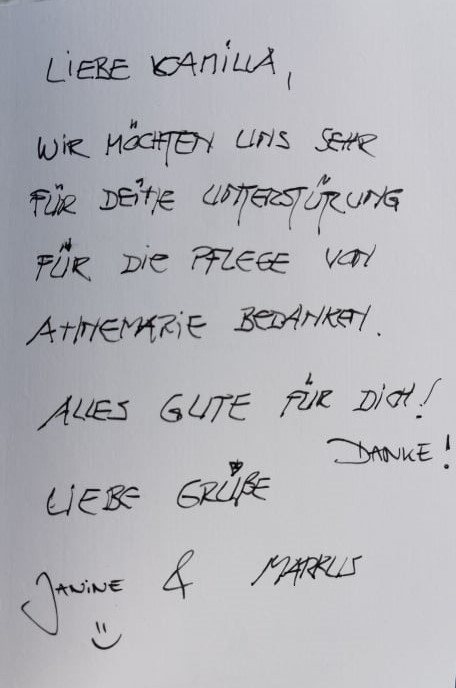 LIEBE KAMILLA,
WIR MÖCHTEN UNS SEHR
FÜR DEINE UNTERSTÜRUNG
FÜR DIE PFLEGE VON
ANNEMARIE BEDANKEN.
ALLES GUTE FÜR DICH!
DANKE!
LIEBE GRÜßE
JANINE & MARKUS